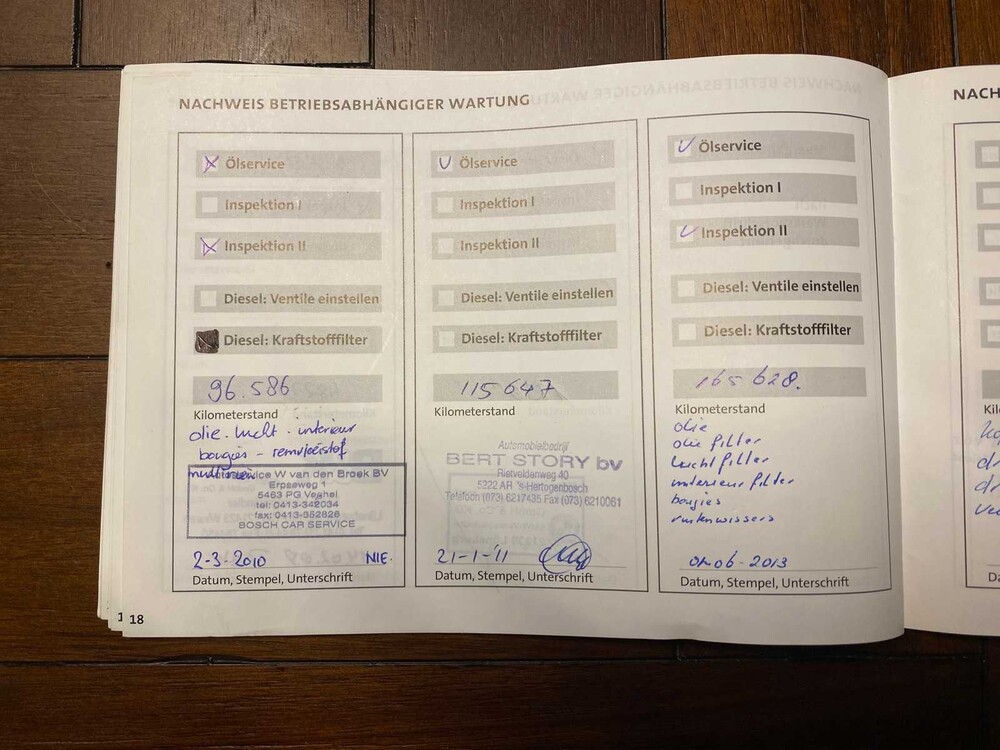 NACHWEIS BETRIEBSABHÄNGIGER WARTUNG
Ölservice
Inspektion I
Inspektion II
Diesel: Ventile einstellen
Diesel: Kraftstofffilter
96.586
Kilometerstand
olie - lucht - interieur
bougies - remvloeistof
service W van den Broek BV
Erpseweg 1
5463 PG Veghel
tel: 0413-342034
fax: 0413-352826
BOSCH CAR SERVICE
2-3-2010 NIE.
Datum, Stempel, Unterschrift
Ölservice
Inspektion I
Inspektion II
Diesel: Ventile einstellen
Diesel: Kraftstofffilter
115647
Kilometerstand
Automobielbedrijf
BERT STORY bv
Rietveldenweg 40
5222 AR 's-Hertogenbosch
Telefoon (073) 6217435 Fax (073) 6210061
21-1-'11
Datum, Stempel, Unterschrift
Ölservice
Inspektion I
Inspektion II
Diesel: Ventile einstellen
Diesel: Kraftstofffilter
165 628.
Kilometerstand
olie
olie filter
lucht filter
interieur filter
bougies
ruitenwissers
06 - 2013
Datum, Stempel, Unterschrift
18
NACH
Kil
Da